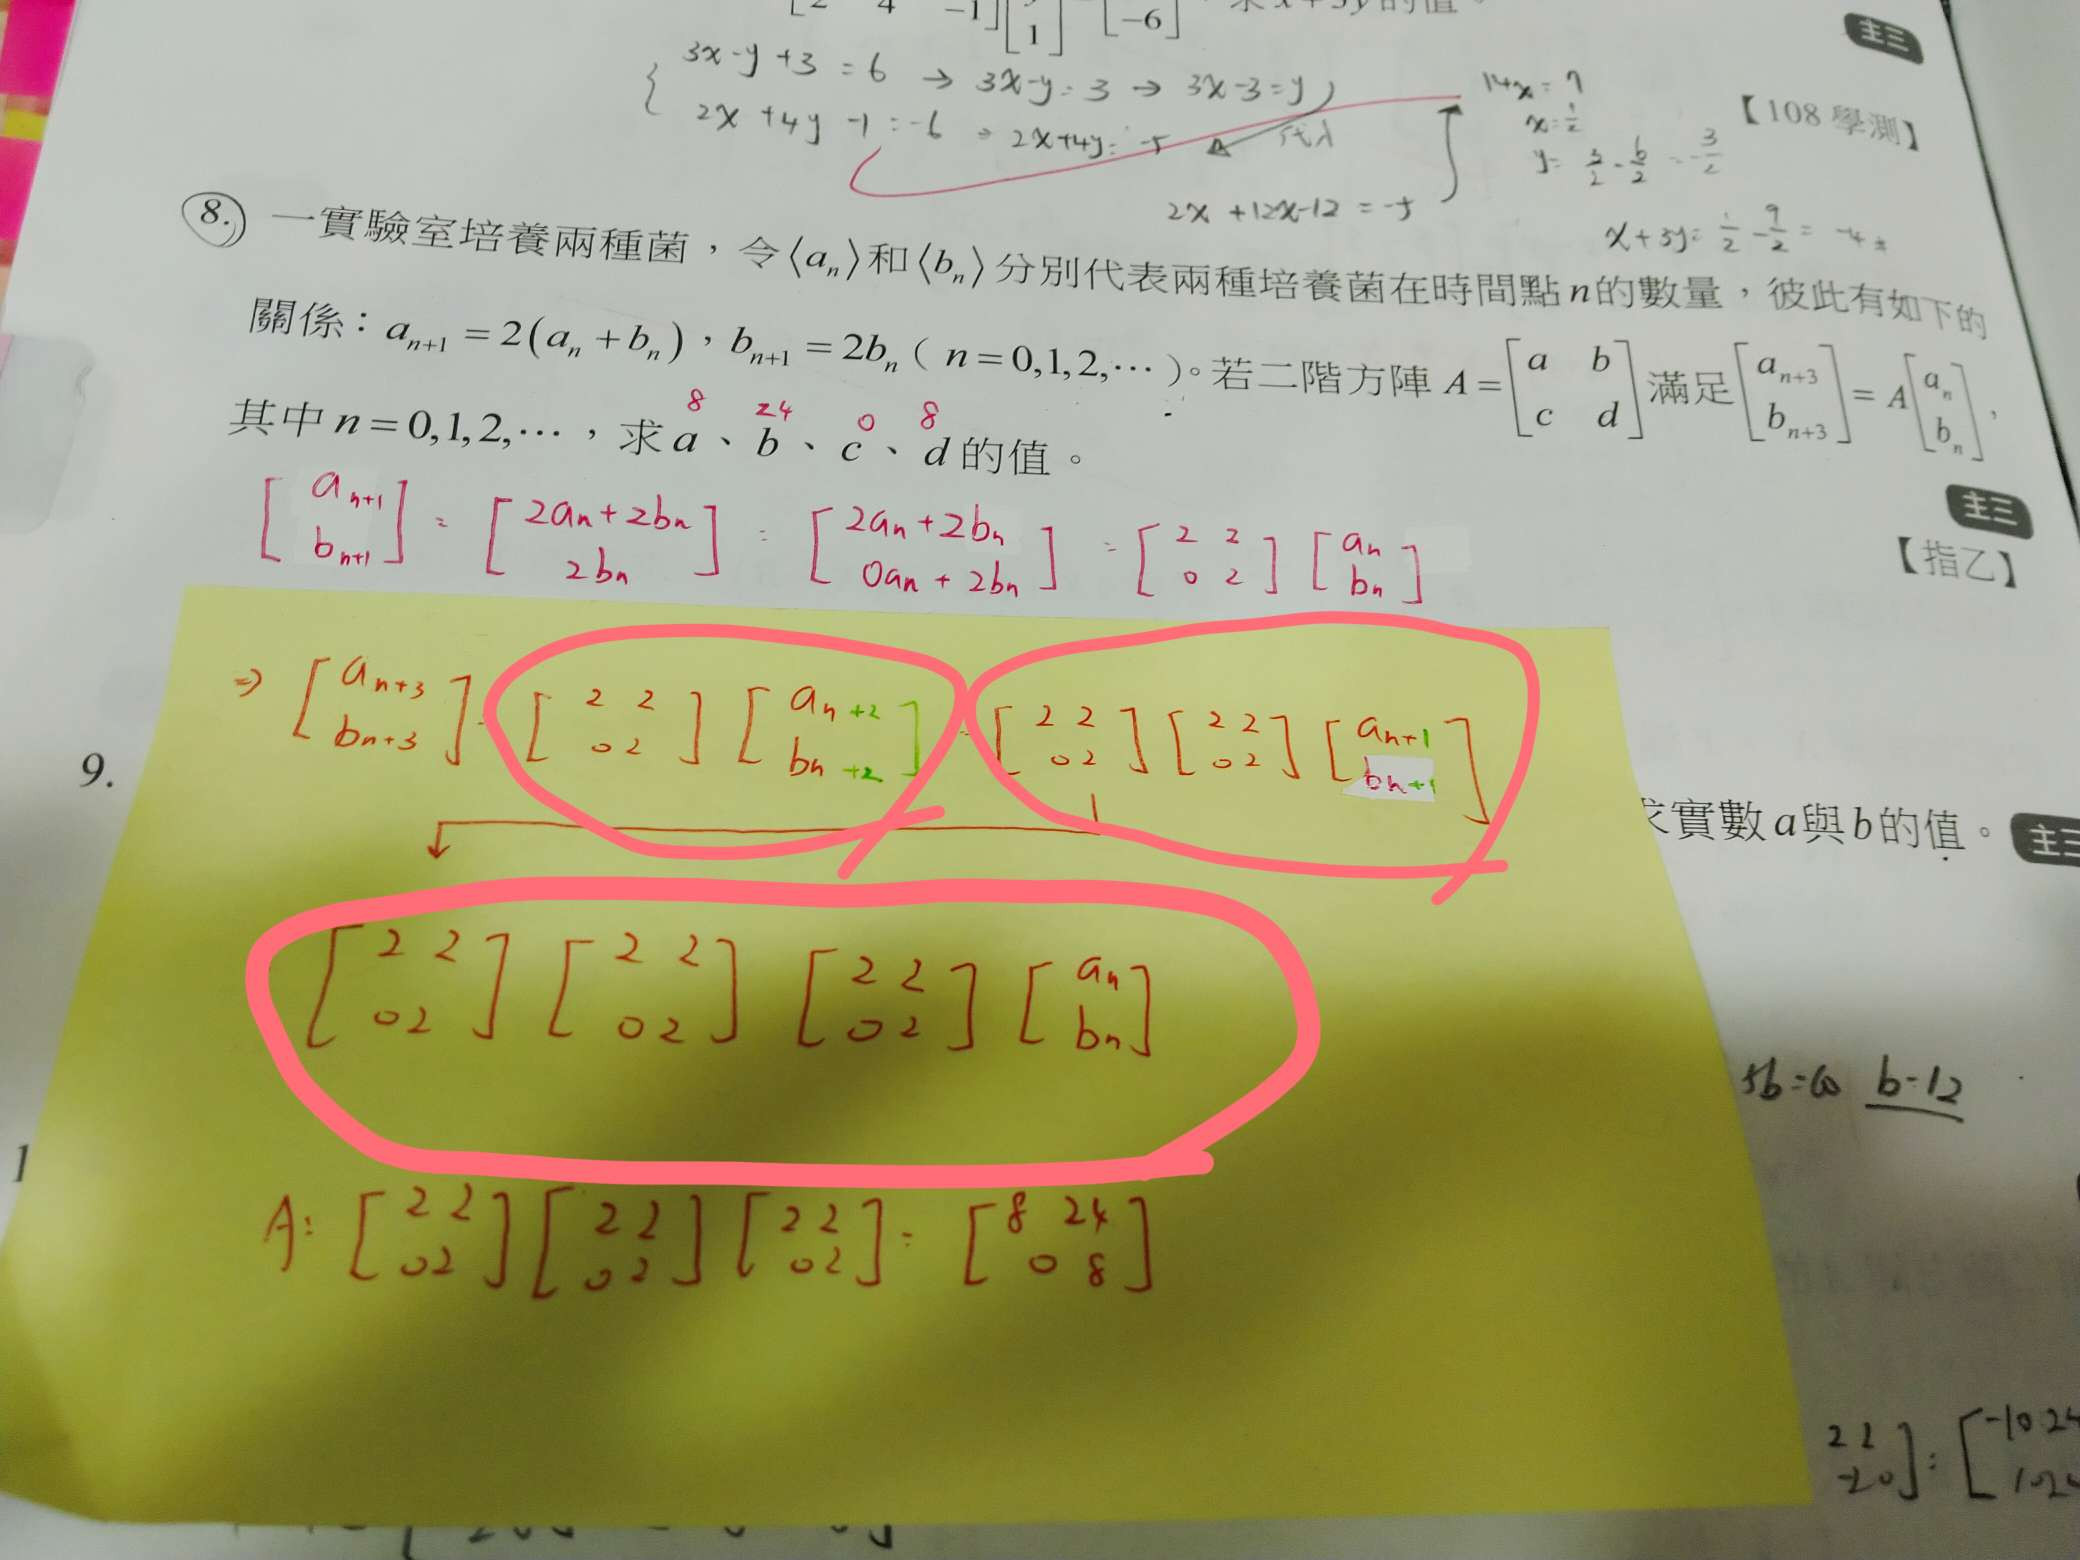 2 4 -1 1 -6 求x+3y的值。
主三
3x-y+3=6 → 3x-y=3 → 3x-3=y
2x+4y-1=-6 → 2x+4y=-5 代入
2x+12x-12=-5
14x=7
x=1/2
y=3/2-6/2=-3/2
x+3y=1/2-9/2=-4
【108 學測】
8. 一實驗室培養兩種菌,令⟨aₙ⟩和⟨bₙ⟩分別代表兩種培養菌在時間點n的數量,彼此有如下的
關係:aₙ₊₁=2(aₙ+bₙ),bₙ₊₁=2bₙ(n=0,1,2,⋯)。若二階方陣A=[a b; c d]滿足[aₙ₊₃; bₙ₊₃]=A[aₙ; bₙ],
8 24 0 8
其中n=0,1,2,⋯,求a、b、c、d的值。
主三
【指乙】
[aₙ₊₁; bₙ₊₁]=[2aₙ+2bₙ; 2bₙ]=[2aₙ+2bₙ; 0aₙ+2bₙ]=[2 2; 0 2][aₙ; bₙ]
⇒[aₙ₊₃; bₙ₊₃]=[2 2; 0 2][aₙ₊₂; bₙ₊₂]=[2 2; 0 2][2 2; 0 2][aₙ₊₁; bₙ₊₁]
9.
求實數a與b的值。 主三
[2 2; 0 2][2 2; 0 2][2 2; 0 2][aₙ; bₙ]
b=12
A=[2 2; 0 2][2 2; 0 2][2 2; 0 2]=[8 24; 0 8]
2 2
-2 0